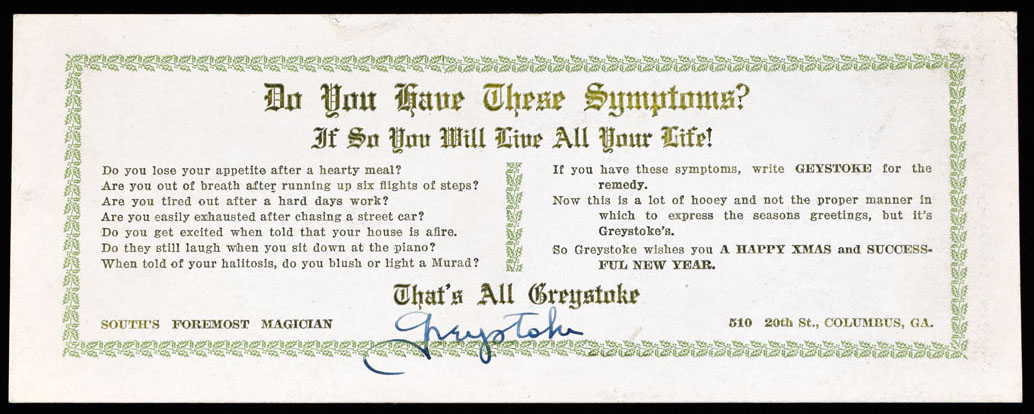 Do You Have These Symptoms?
If So You Will Live All Your Life!
Do you lose your appetite after a hearty meal?
Are you out of breath after running up six flights of steps?
Are you tired out after a hard days work?
Are you easily exhausted after chasing a street car?
Do you get excited when told that your house is afire.
Do they still laugh when you sit down at the piano?
When told of your halitosis, do you blush or light a Murad?
If you have these symptoms, write GEYSTOKE for the
remedy.
Now this is a lot of hooey and not the proper manner in
which to express the seasons greetings, but it's
Greystoke's.
So Greystoke wishes you A HAPPY XMAS and SUCCESS-
FUL NEW YEAR.
That's All Greystoke
SOUTH'S FOREMOST MAGICIAN
Greystoke
510 20th St., COLUMBUS, GA.